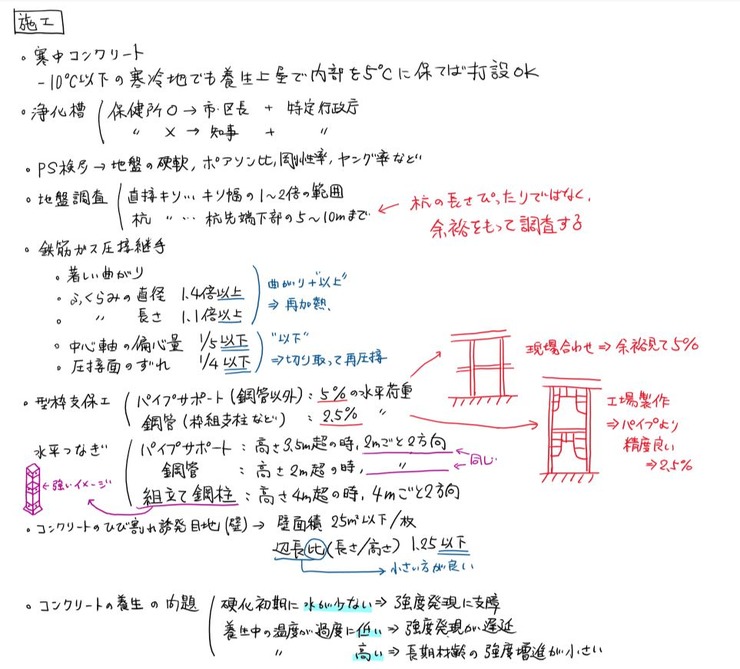 施工
・寒中コンクリート
-10℃以下の寒冷地でも養生上屋で内部を5℃に保てば打設OK
・浄化槽 保健所○→市・区長 + 特定行政庁
〃 ×→知事 + 〃
・PS検层→地盤の硬軟, ポアソン比, 剛性率, ヤング率など
・地盤調査 直接キソ…キソ幅の1~2倍の範囲
杭 〃 …杭先端下部の5~10mまで
← 杭の長さぴったりではなく、
余裕をもって調査する
・鉄筋ガス圧接継手
・著しい曲がり
・ふくらみの直径 1.4倍以上
・ 〃 長さ 1.1倍以上
曲がり+"以上"
⇒再加熱、
・中心軸の偏心量 1/5以下
・圧接面のずれ 1/4以下
"以下"
⇒切り取って再圧接
現場合わせ⇒余裕見て5%
・型枠支保工 パイプサポート(鋼管以外):5%の水平荷重
鋼管(枠組支柱など) : 2.5% 〃
工場製作
⇒パイプより
精度良い
⇒2.5%
水平つなぎ パイプサポート:高さ3.5m超の時, 2mごと2方向
鋼管 :高さ2m超の時, 〃
←同じ
組立て鋼柱:高さ4m超の時, 4mごと2方向
←強いイメージ
・コンクリートのひび割れ誘発目地(壁)→ 壁面積 25㎡以下/枚
辺長比(長さ/高さ) 1.25以下
→小さい方が良い
・コンクリートの養生の問題 硬化初期に水が少ない⇒強度発現に支障
養生中の温度が過度に低い⇒強度発現が遅延
〃 高い⇒長期材齢の強度増進が小さい